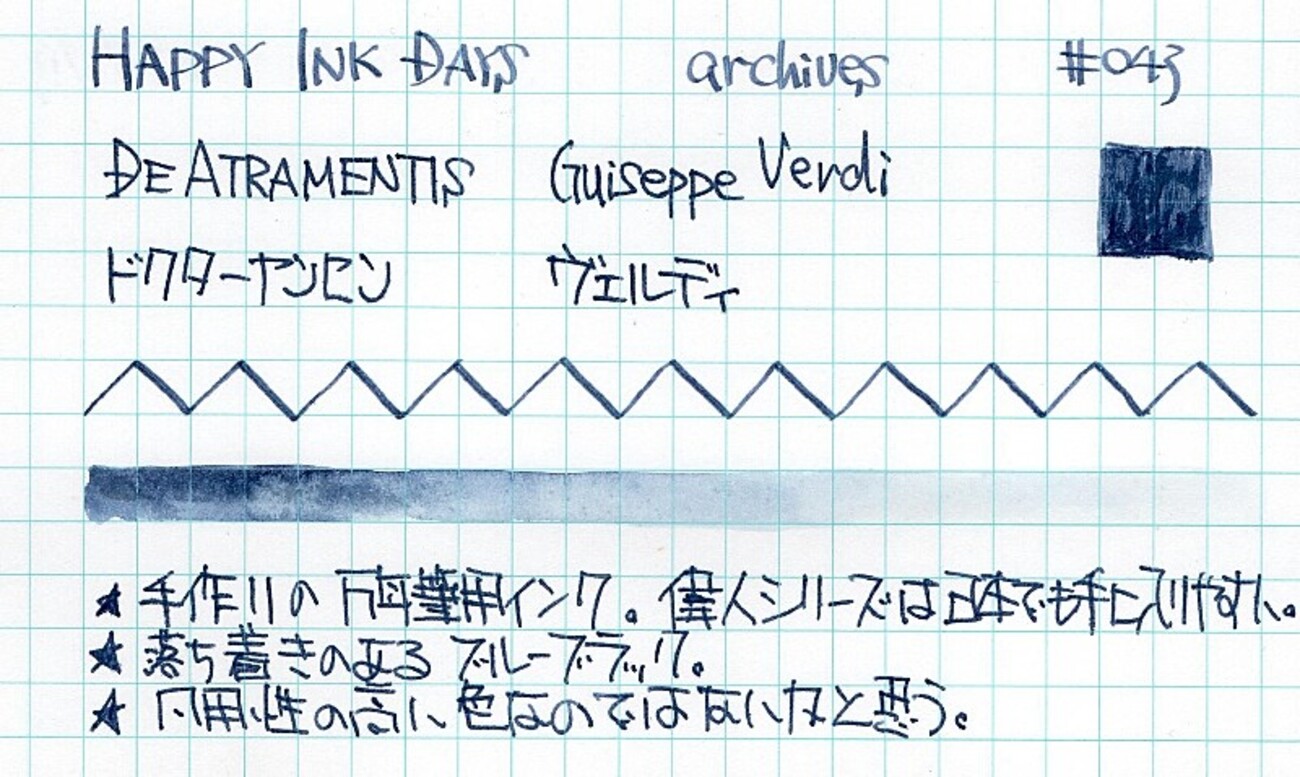 HAPPY INK DAYS archives #043
DE ATRAMENTIS Guiseppe Verdi
ドクターヤンセン ヴェルディ
★ 手作りの万年筆用インク。偉人シリーズは日本でも手に入りやすい。
★ 落ち着きのあるブルーブラック。
★ 汎用性の高い色なのではないかと思う。